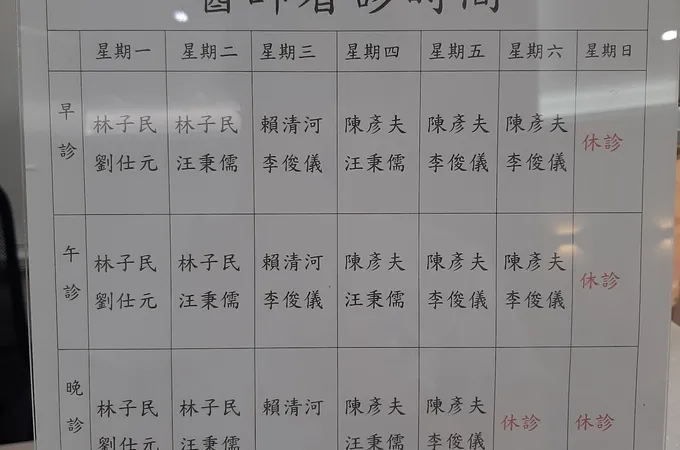 醫師看診時間
星期一 星期二 星期三 星期四 星期五 星期六 星期日
早診
林子民 林子民 賴清河 陳彥夫 陳彥夫 陳彥夫 休診
劉仕元 汪秉儒 李俊儀 汪秉儒 李俊儀 李俊儀
午診
林子民 林子民 賴清河 陳彥夫 陳彥夫 陳彥夫 休診
劉仕元 汪秉儒 李俊儀 汪秉儒 李俊儀 李俊儀
晚診
林子民 林子民 賴清河 陳彥夫 陳彥夫 休診 休診
劉仕元 汪秉儒 汪秉儒 李俊儀